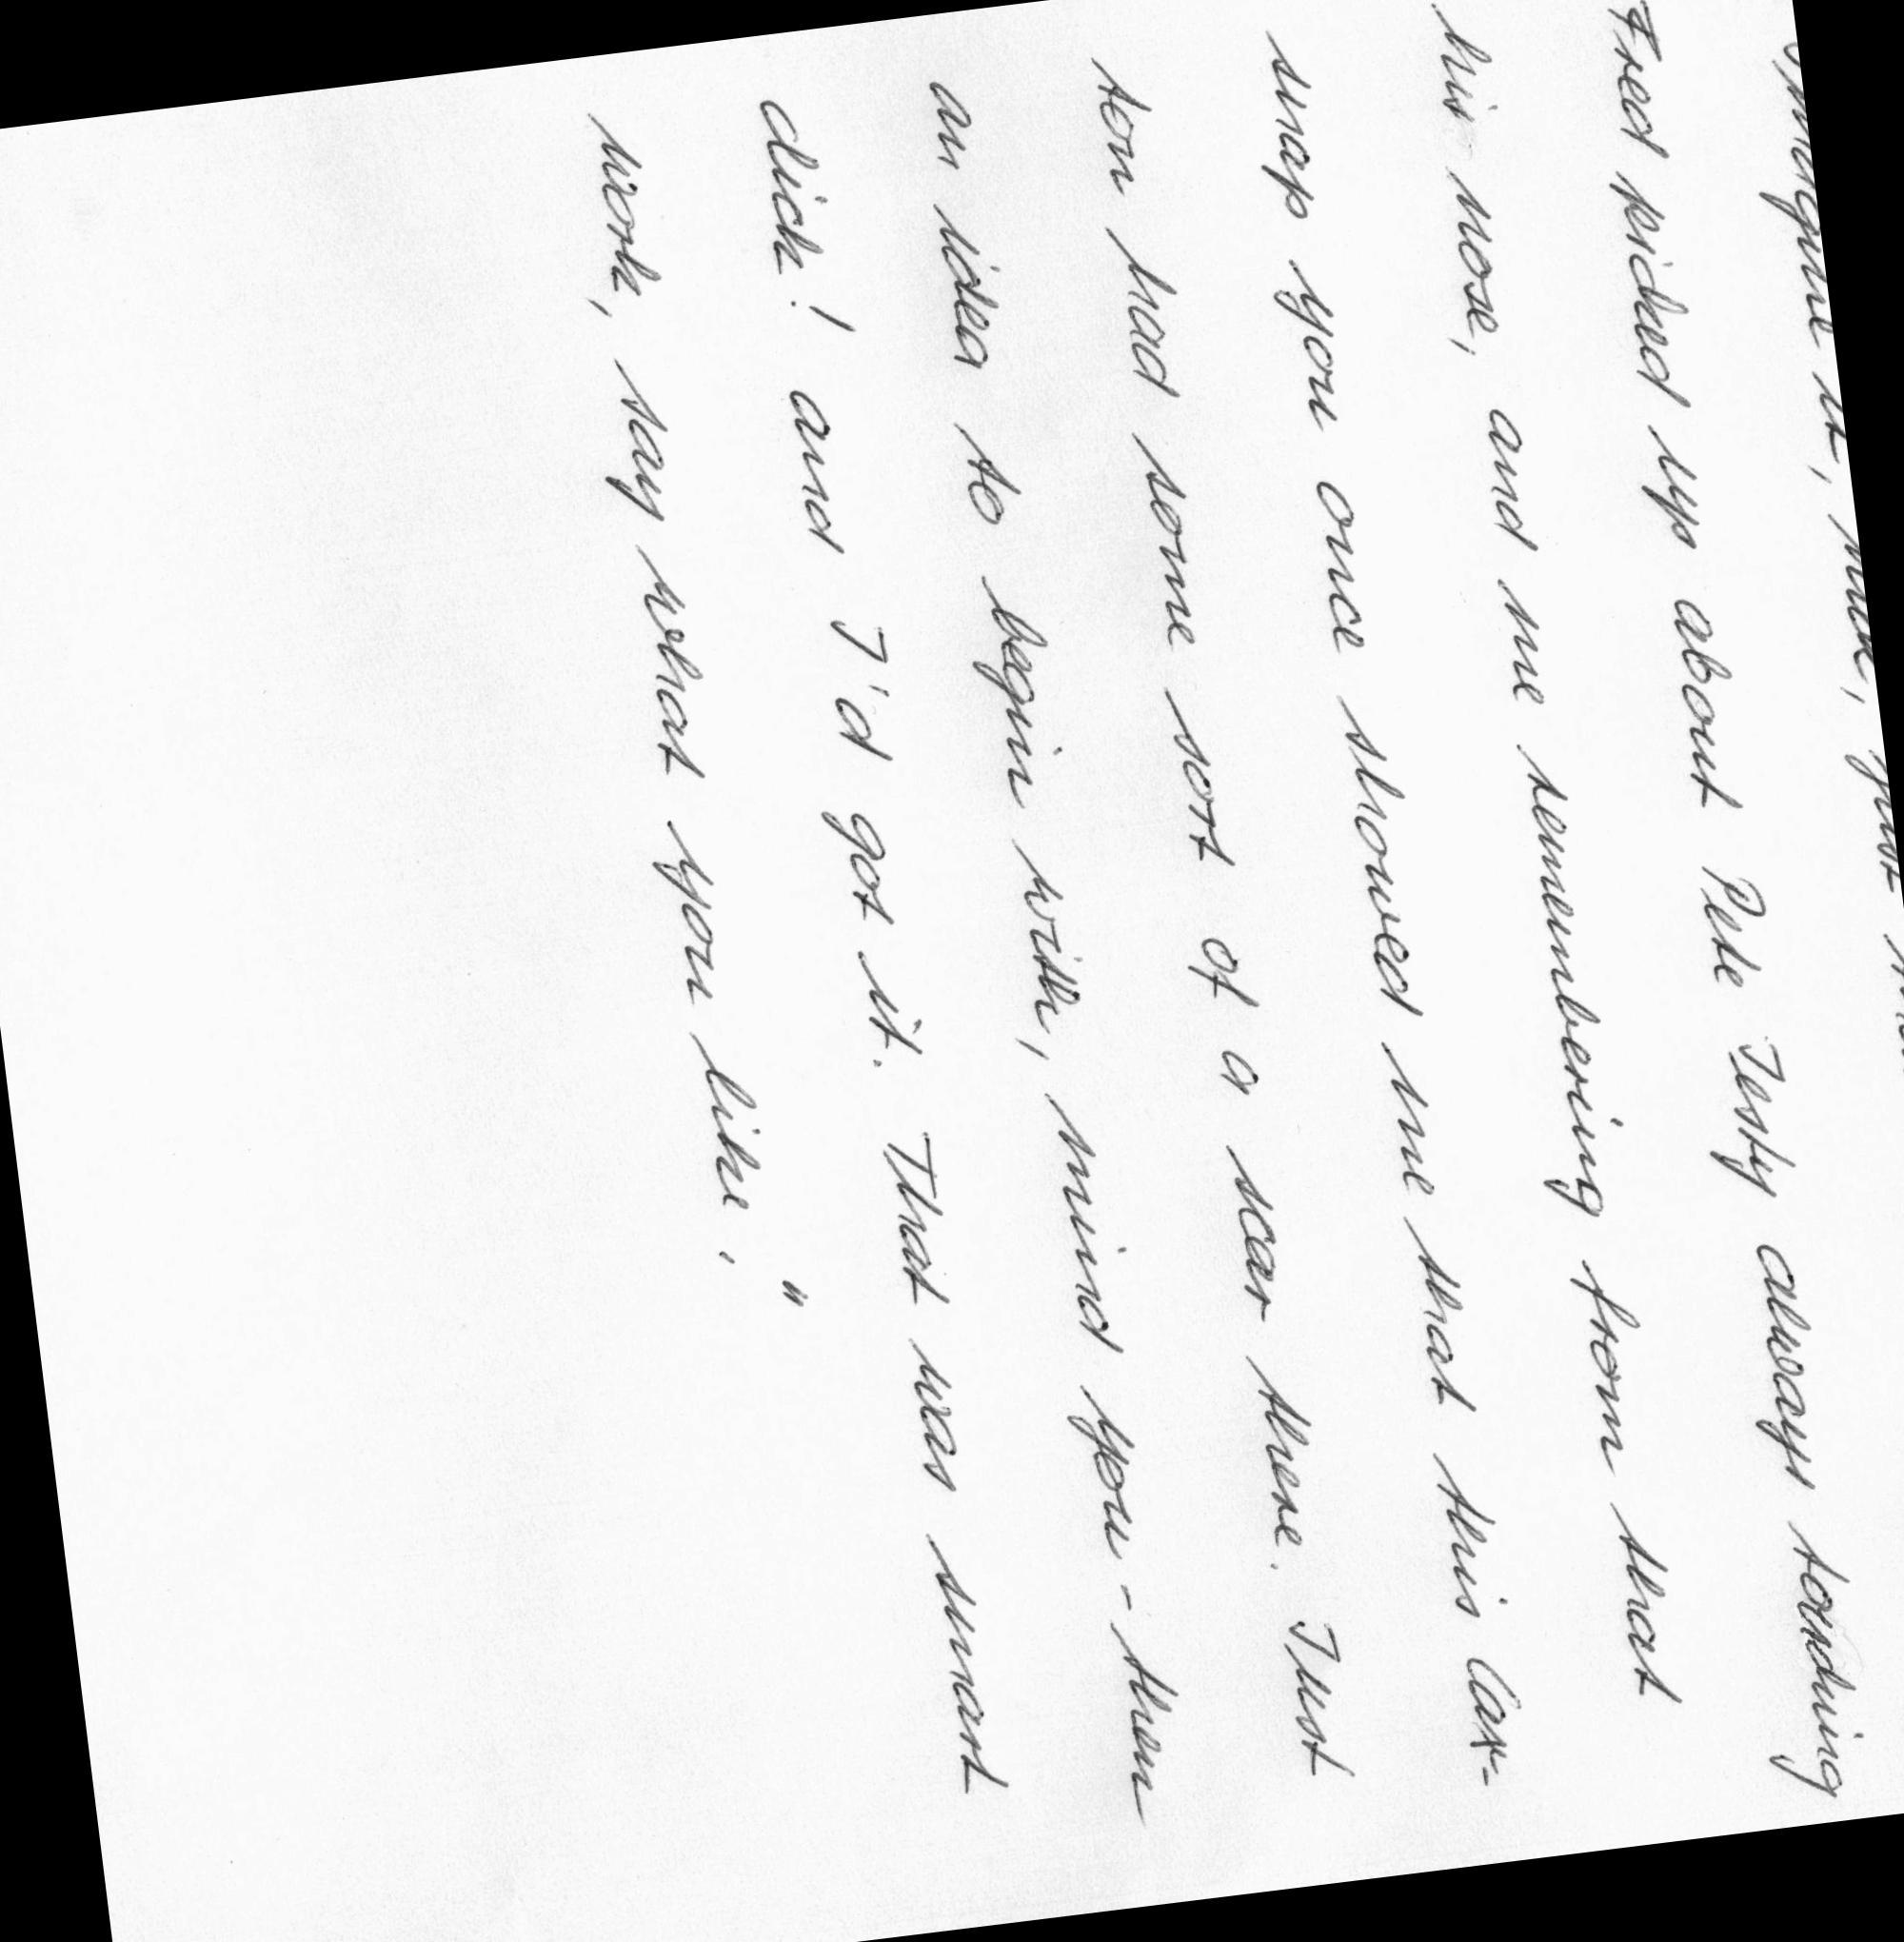 imagine it, mate, just
Fred picked up about Pete Testy always touching
his nose, and me remembering from that
snap you once showed me that this Car-
ton had some sort of a scar there. Just
an idea to begin with, mind you - then
click! and I'd got it. That was smart
work, say what you like."